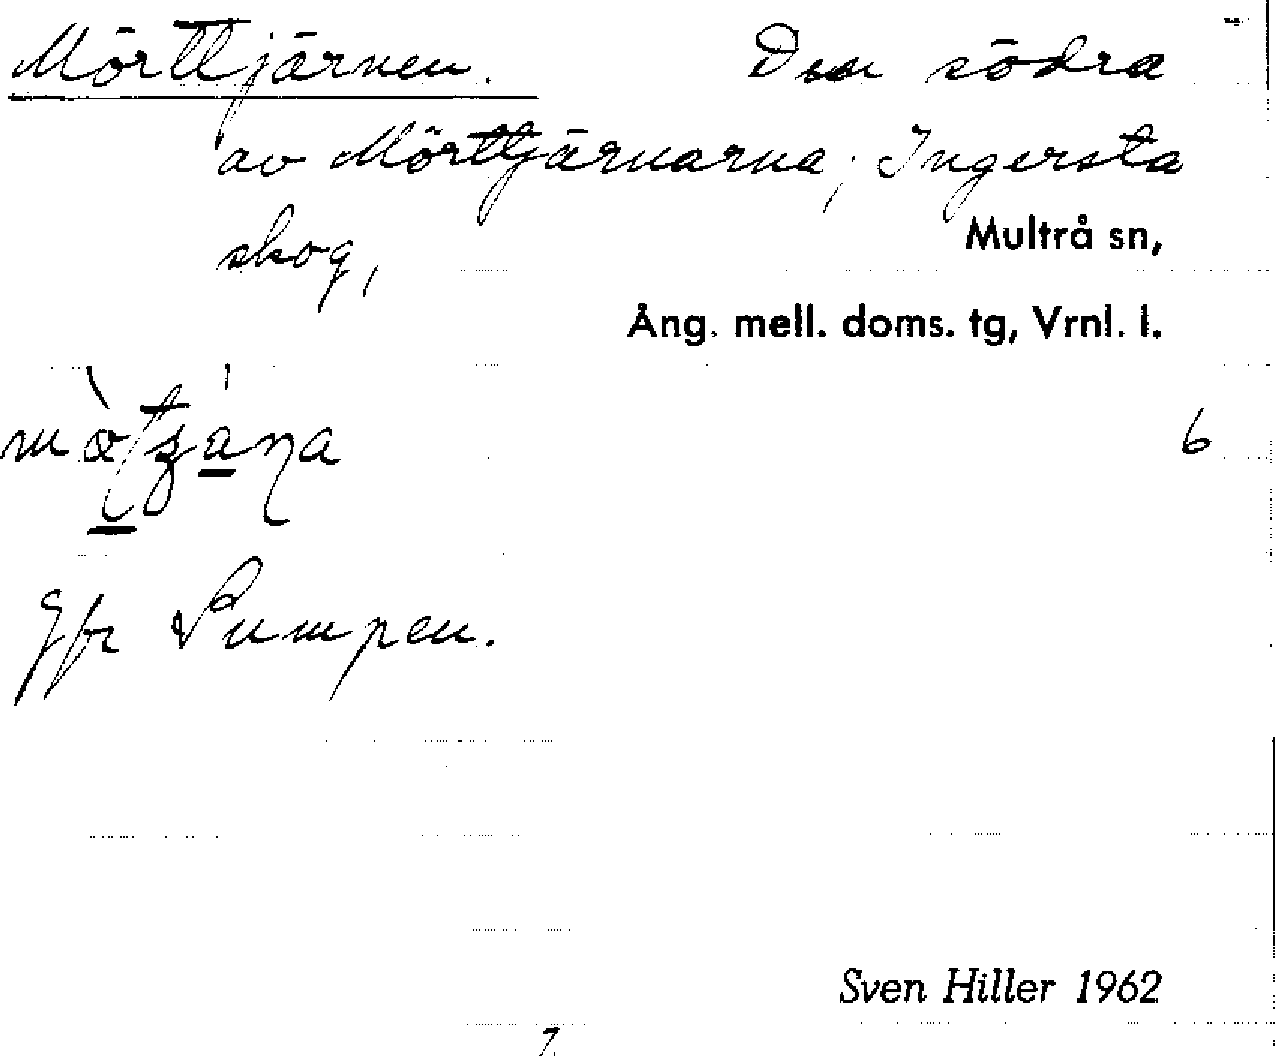 Mörttjärnen. Den södra
av Mörttjärnarna, Ingersta
skog,
Multrå sn,
Ång. mell. doms. tg, Vrnl. l.
6
Jfr Pumpen.
Sven Hiller 1962
7.